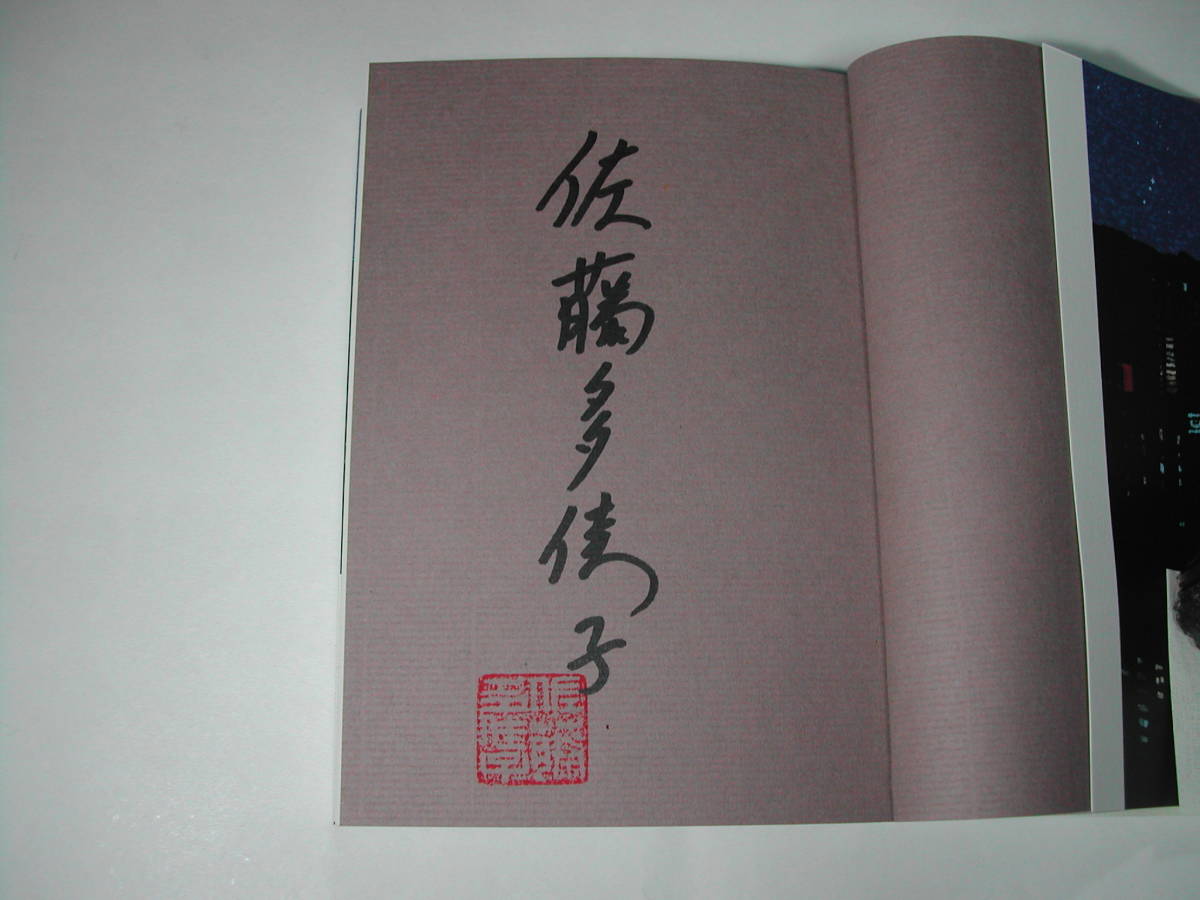 佐藤多佳子